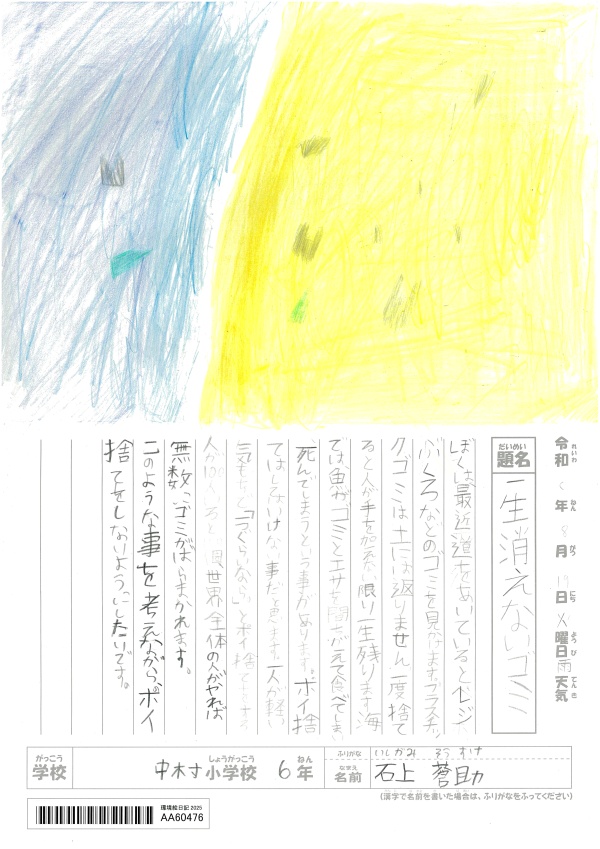 令和 年 8月 19日 火曜日 雨 天気
れいわ ねん がつ にち ようび てんき
だいめい
題名 一生消えないゴミ
ぼくは、最近道をあいているとレジ
ぶくろなどのゴミを見かけます。プラスチッ
クゴミは土には返りません。一度捨て
ると人が手を加えない限り一生残ります。海
では魚がゴミとエサを間ちがえて食べてしまい
死んでしまうという事があります。ポイ捨
てはしないいけない事だと思います。一人が軽い
気もちで「1つくらいなら」とポイ捨てをする
人が 世界全体の人がやれば
無数にゴミがばらまかれます。
このような事を考えながら、ポイ
捨てをしないようにしたいです。
がっこう しょうがっこう ねん
学校 中村小学校 6年
ふりがな いしがみ そうすけ
なまえ
名前 石上 蒼助
(漢字で名前を書いた場合は、ふりがなをふってください)
環境絵日記 2025
AA60476